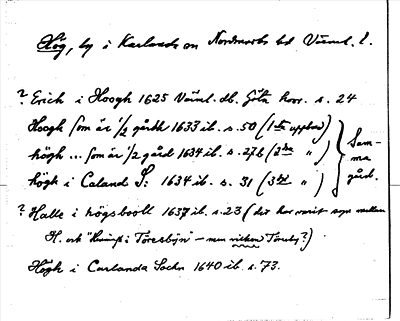 Hög, by i Karlanda sn Nordmarks hd Värml. l.
? Erich i Hoogh 1625 Värml. db. Göta horr. s. 24
Hoogh som är 1/2 gårdh 1633 ib. s. 50 (1sta uppbör)
högh ... som är 1/2 gård 1634 ib. s. 276 (2dra ")
högh i Caland S: 1634 ib. s. 31 (3dje ")
Samma gård.
? Halle i högsbooll 1637 ib. s. 23 (det har varit sys mellan
H. och i Töresbÿn" – men vilken Töresby?)
Högh i Carlanda Sochn 1640 ib. s. 73.